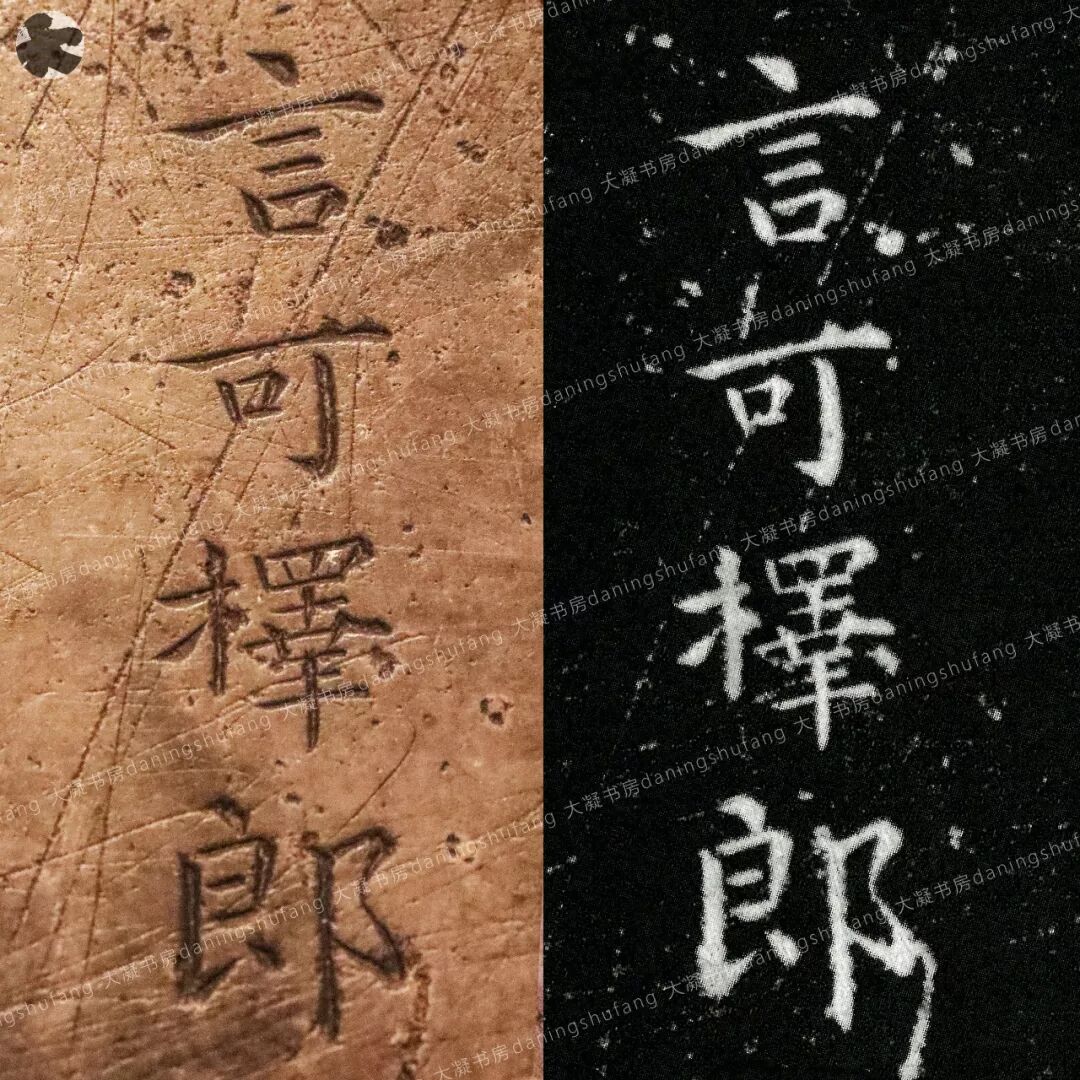 言可檡郎
言可檡郎
大凝书房daningshufang